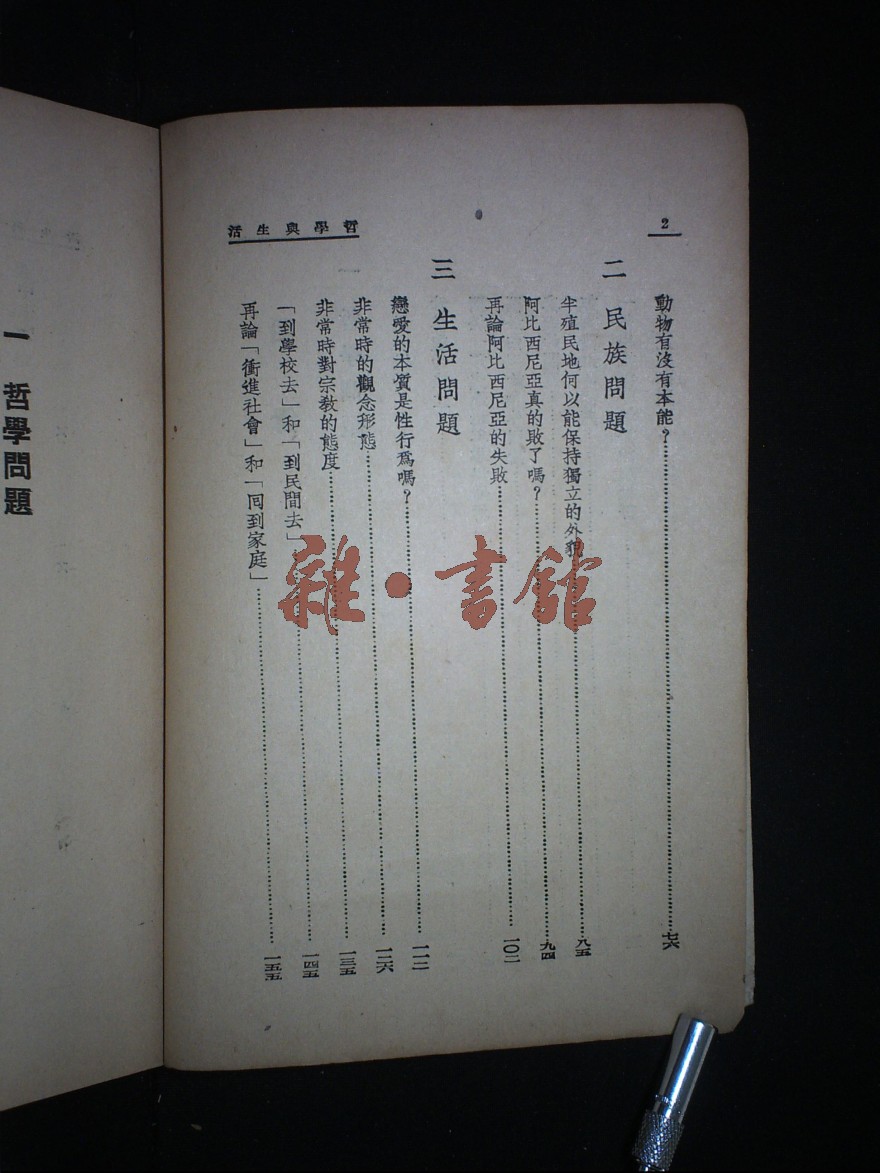 2
哲學與生活
動物有沒有本能？……七六
二 民族問題
半殖民地何以能保持獨立的外貌……八五
阿比西尼亞真的敗了嗎？……九四
再論阿比西尼亞的失敗……一〇二
三 生活問題
戀愛的本質是性行爲嗎？……一一二
非常時的觀念形態……一二六
非常時對宗教的態度……一三五
「到學校去」和「到民間去」……一四五
再論「衝進社會」和「囘到家庭」……一五五
一 哲學問題
雜·書館